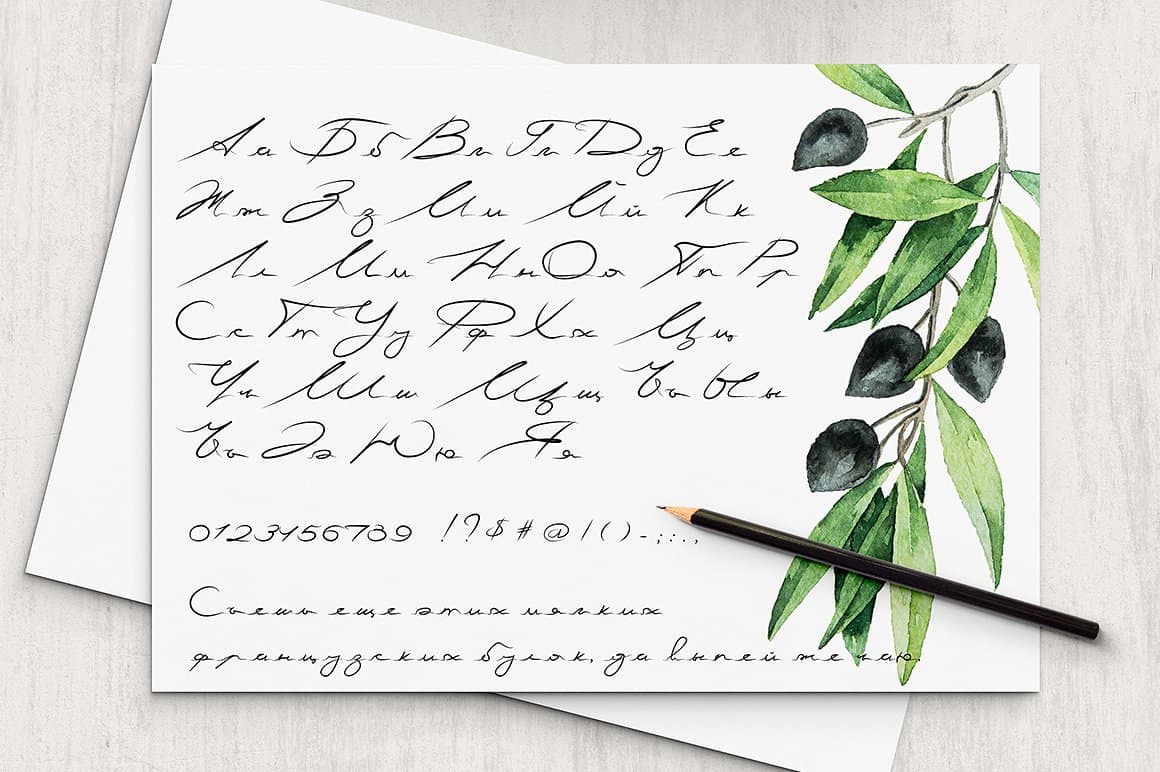 Аа Бб Вв Гг Дд Ее
Жж Зз Ии Йй Кк
Лл Мм Нн Оо Пп Рр
Сс Тт Уу Фф Хх Цц
Чч Шш Щщ Ъъ Ыы
Ьь Ээ Юю Яя
0123456789 !?$#@|()-;:.,
Съешь еще этих мягких
французских булок, да выпей же чаю.